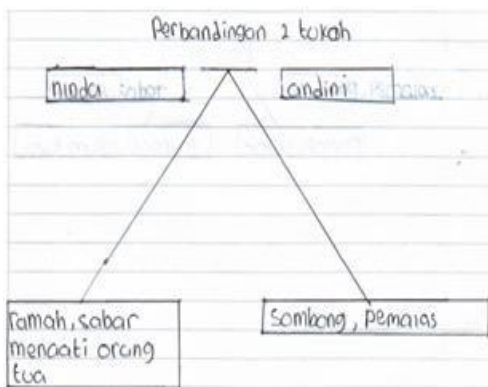 Perbandingan 2 tokoh
ninda sabar
andini pemalas
ramah, sabar
menaati orang
tua
Sombong, Pemalas